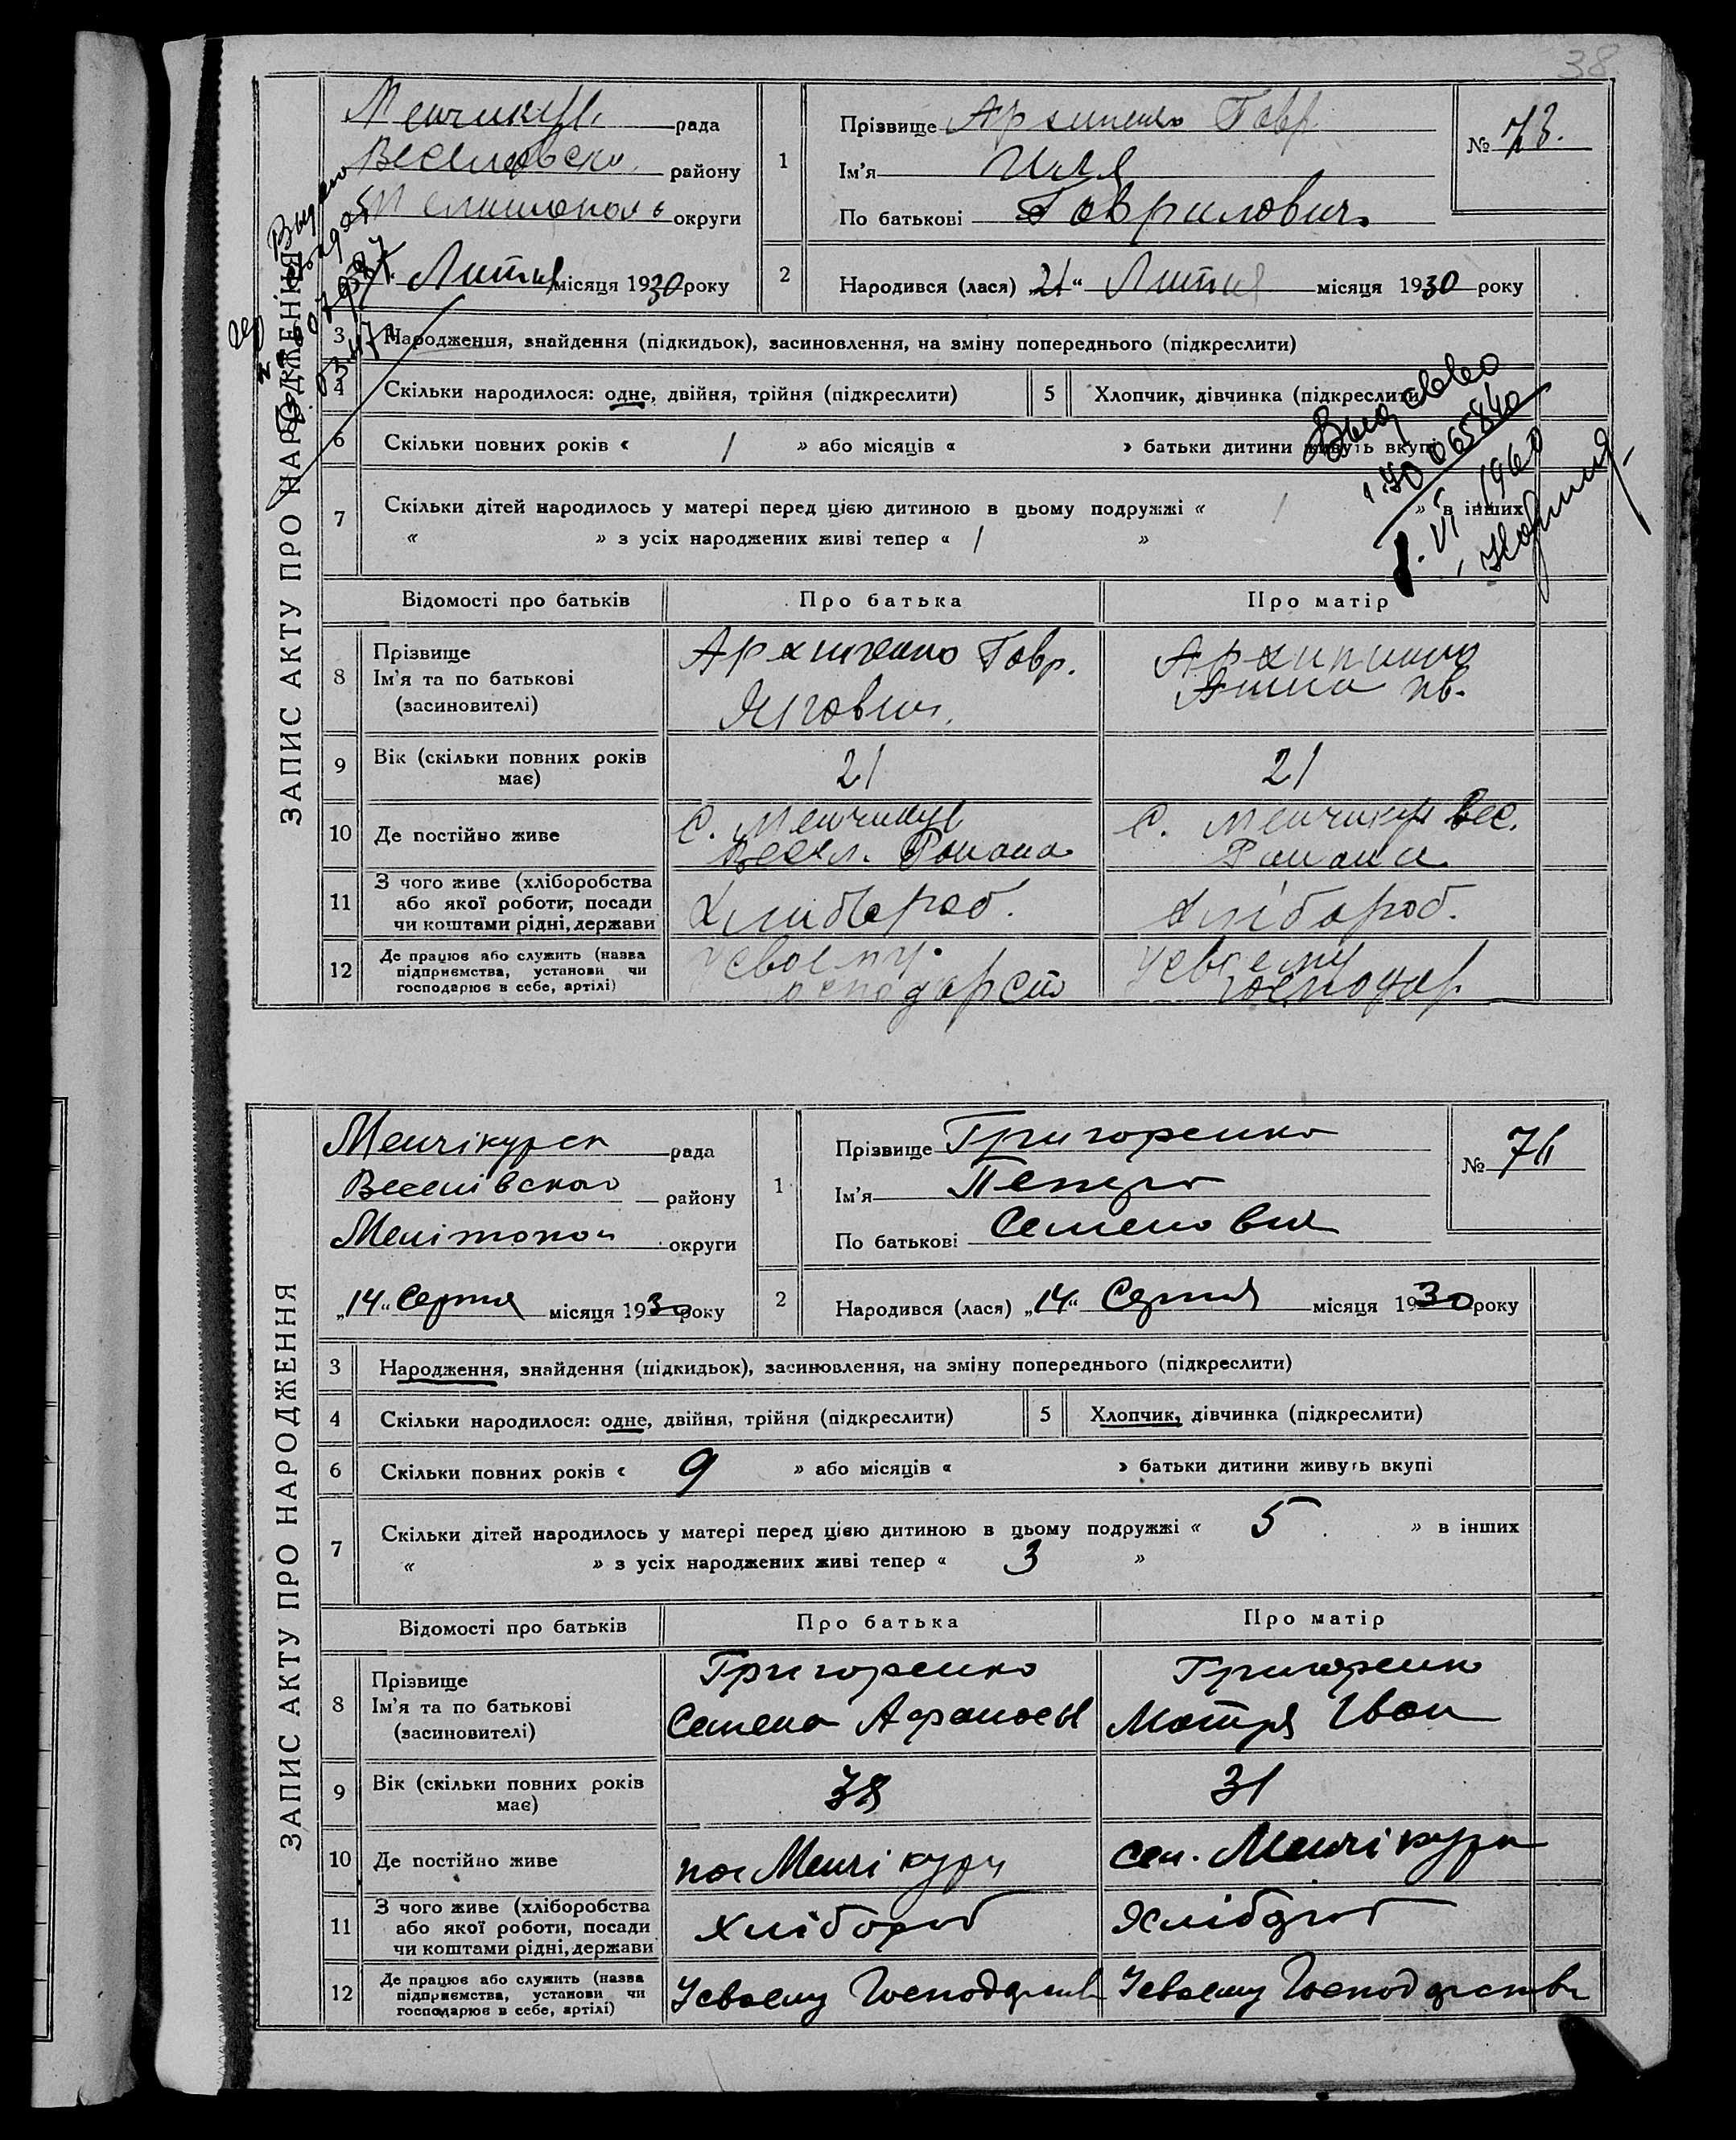 38
ЗАПИС АКТУ ПРО НАРОДЖЕННЯ
Менчикур. рада
Веселовско. району
Мелитополь округи
Липня місяця 1930 року
1
Прізвище Архипенко Гавр.
Ім'я Илля
По батькові Гаврилович.
№ 73.
2
Народився (лася) „21“ Липня місяця 1930 року
3 Народження, знайдення (підкидьок), засиновлення, на зміну попереднього (підкреслити)
4 Скільки народилося: одне, двійня, трійня (підкреслити) 5 Хлопчик, дівчинка (підкреслити)
6 Скільки повних років « 1 » або місяців « » батьки дитини живуть вкупі
7 Скільки дітей народилось у матері перед цією дитиною в цьому подружжі « 1 » в інших
« » з усіх народжених живі тепер « 1 »
065840
VI 1960
Відомості про батьків Про батька Про матір
8 Прізвище
Ім'я та по батькові
(засиновителі)
Архипенко Гавр.
Архипенко
Анна Ив.
9 Вік (скільки повних років має) 21 21
10 Де постійно живе
С. Менчикур
Весел. Района
С. Менчикур Вес.
Района
11 З чого живе (хліборобства
або якої роботи, посади
чи коштами рідні, держави
Хлибороб. Хлібороб.
12 Де працює або служить (назва
підприємства, установи чи
господарює в себе, артілі)
Усвоему
господарст
Усвоему
господар.
ЗАПИС АКТУ ПРО НАРОДЖЕННЯ
Менчікурск рада
Веселівского району
Мелітопол округи
„14“ Серпня місяця 1930 року
1
Прізвище Григоренко
Ім'я Петро
По батькові Семенович
№ 74
2
Народився (лася) „14“ Серпня місяця 1930 року
3 Народження, знайдення (підкидьок), засиновлення, на зміну попереднього (підкреслити)
4 Скільки народилося: одне, двійня, трійня (підкреслити) 5 Хлопчик, дівчинка (підкреслити)
6 Скільки повних років « 9 » або місяців « » батьки дитини живуть вкупі
7 Скільки дітей народилось у матері перед цією дитиною в цьому подружжі « 5 » в інших
« » з усіх народжених живі тепер « 3 »
Відомості про батьків Про батька Про матір
8 Прізвище
Ім'я та по батькові
(засиновителі)
Григоренко
Семена
Григоренко
Мотря Іван
9 Вік (скільки повних років має) 38 31
10 Де постійно живе
Менчікури
сел. Менчікури
11 З чого живе (хліборобства
або якої роботи, посади
чи коштами рідні, держави
Хлібороб Хлібороб
12 Де працює або служить (назва
підприємства, установи чи
господарює в себе, артілі)
Усвоему Господарств Усвоему Господарстві